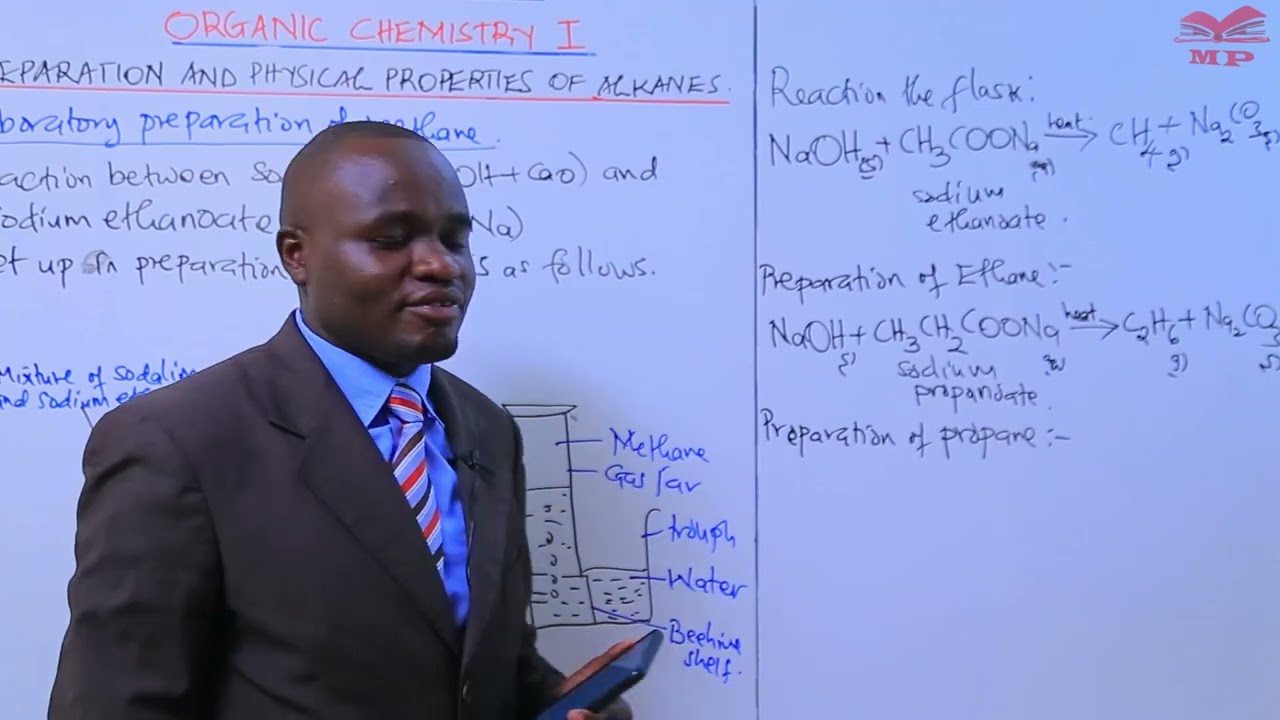 ORGANIC CHEMISTRY I
EPARATION AND PHYSICAL PROPERTIES OF ALKANES.
boratory preparation of methane.
action between so OH+CaO) and
sodium ethanoate Na)
et up in preparation s as follows.
Mixture of sodalim
and sodium et
Methane
Gas jar
trough
Water
Beehive
shelf.
Reaction the flask:
NaOH(s) + CH3COONa(s) heat → CH4(g) + Na2CO3(s)
sodium
ethanoate.
Preparation of Ethane:-
NaOH(s) + CH3CH2COONa(s) heat → C2H6(g) + Na2CO3(s)
sodium
propanoate.
Preparation of propane:-
MP